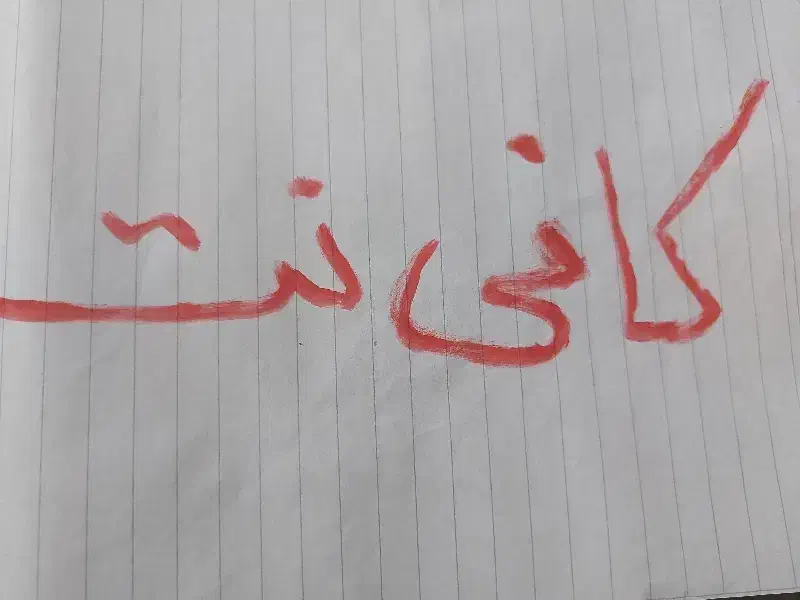 کافی نت